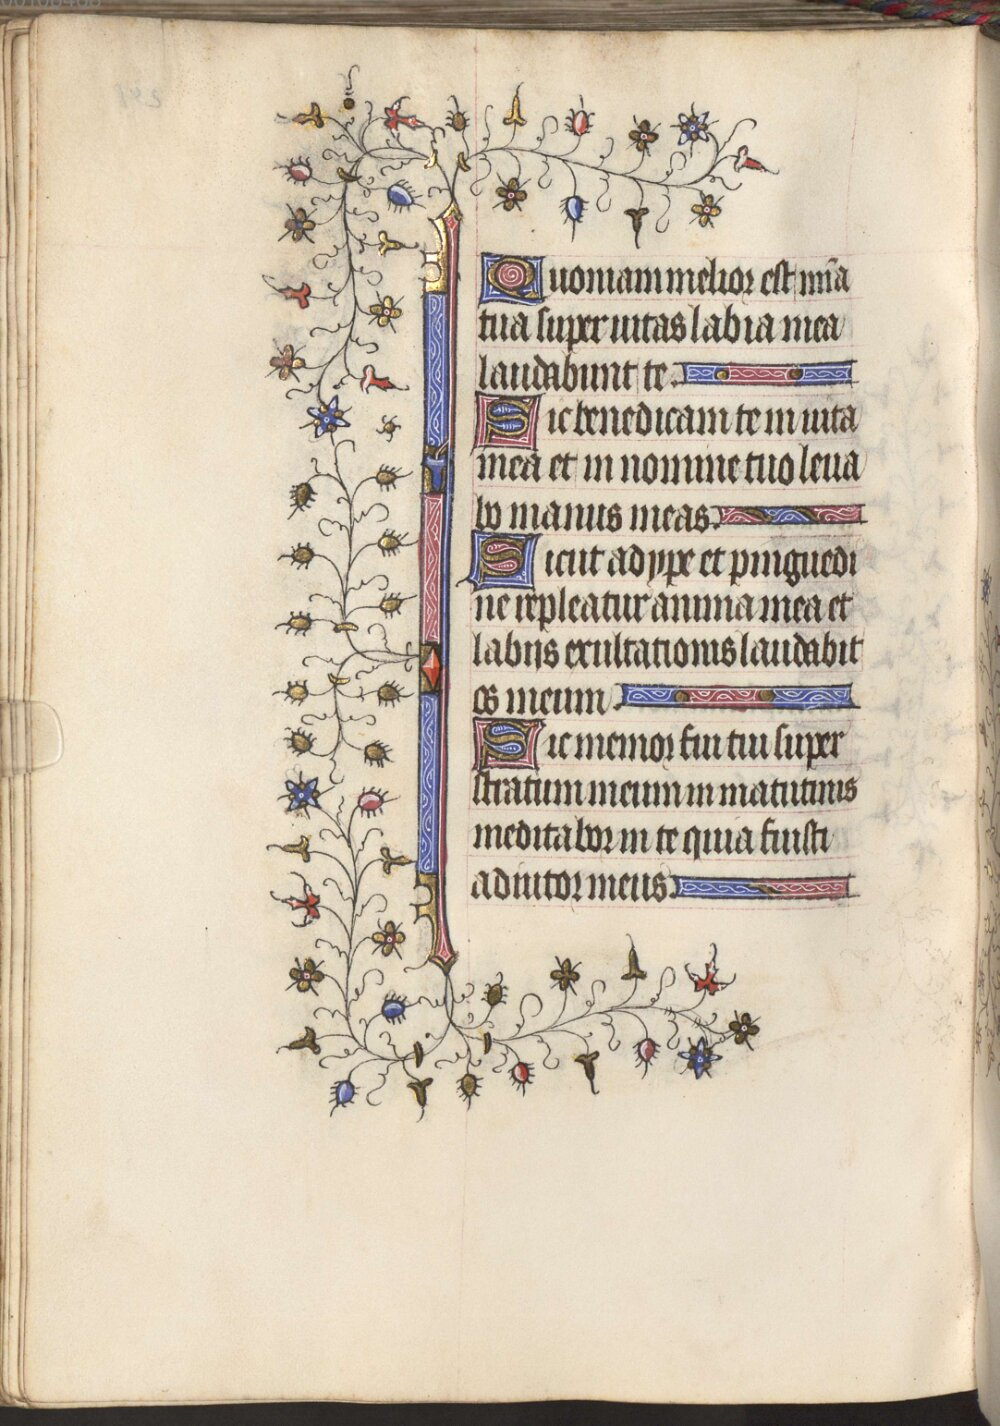 Quoniam melior est mīa
tua super uitas labia mea
laudabunt te.
Sic benedicam te in uita
mea et in nomine tuo leua
bo manus meas.
Sicut adype et pinguedi
ne repleatur anima mea et
labiis exultationis laudabit
os meum.
Sic memor fui tui super
stratum meum in matutinis
meditabor in te quia fuisti
adiutor meus.